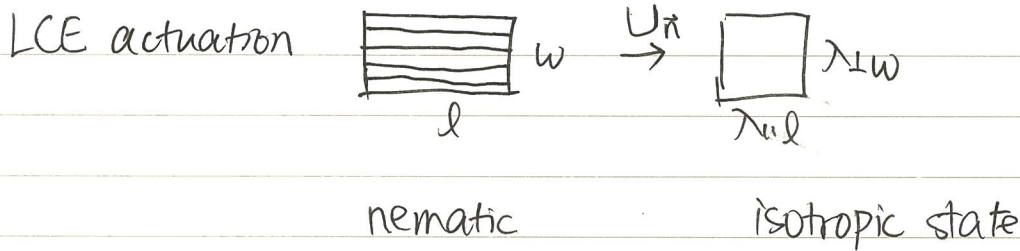 LCE actuation w U_n⃗ → λ⊥w
l λ∥l
nematic isotropic state